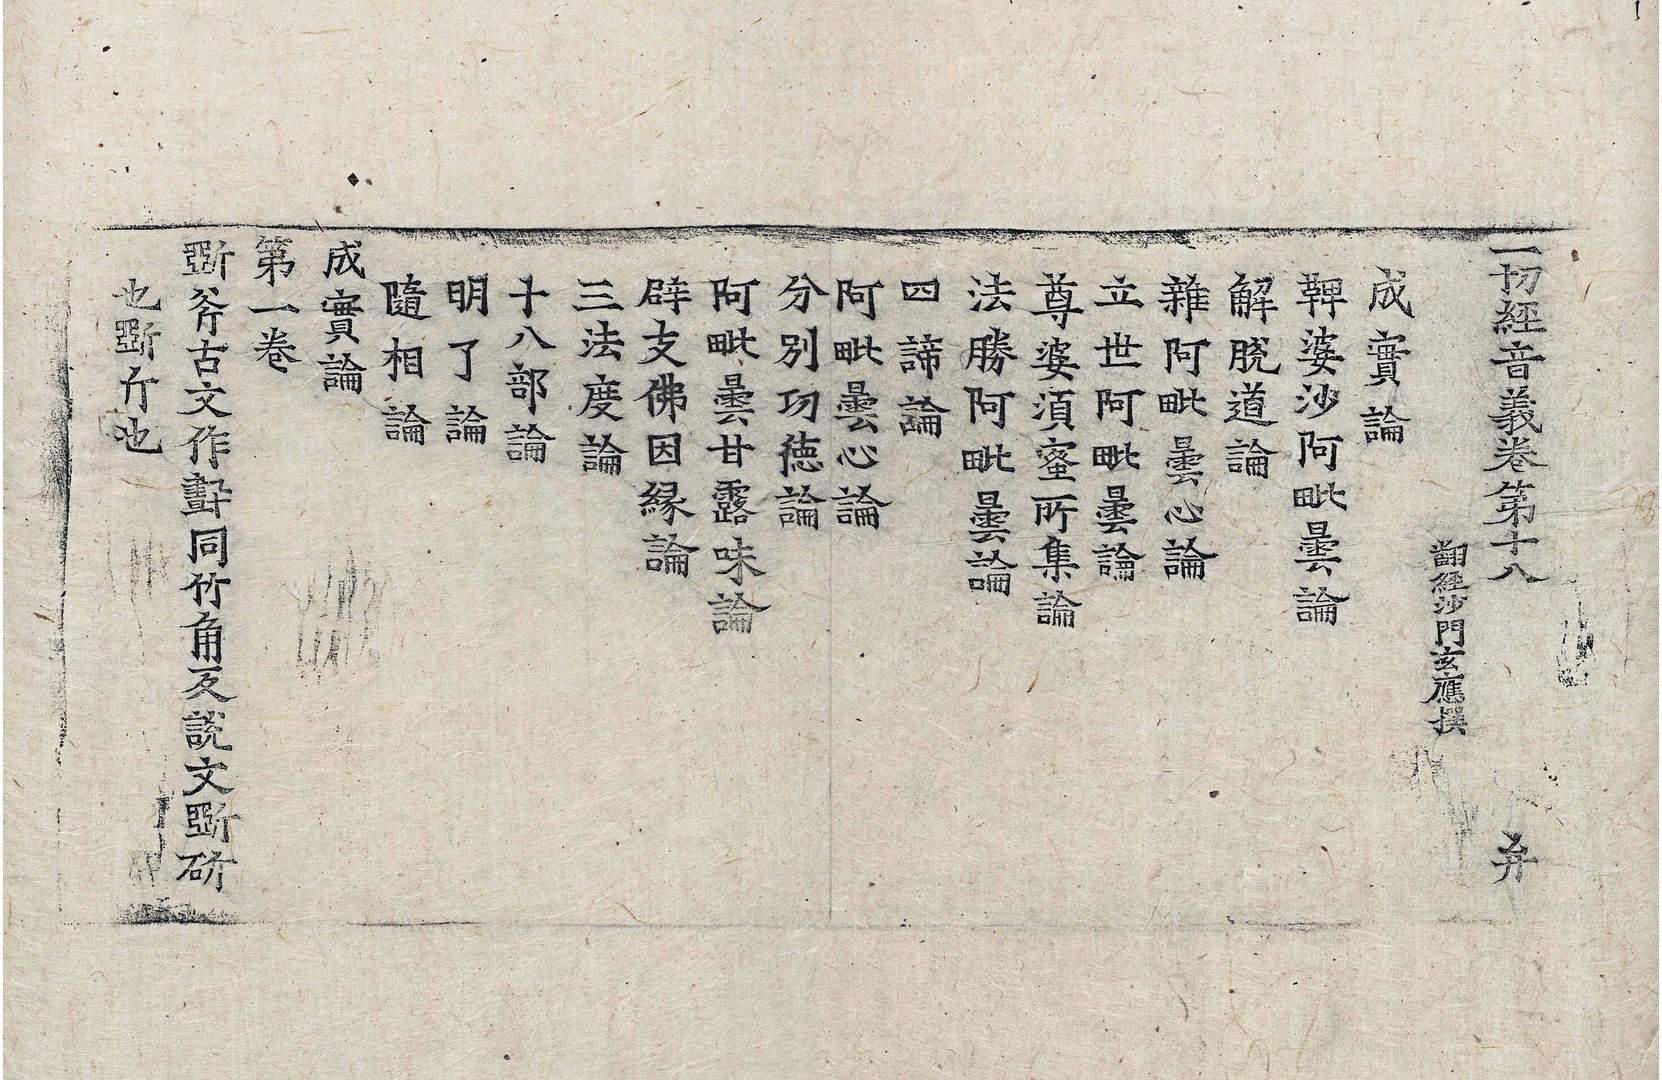 一切經音義卷第十八 弁
翻經沙門玄應撰
成實論
鞞婆沙阿毗曇論
解脫道論
雜阿毗曇心論
立世阿毗曇論
尊婆須蜜所集論
法勝阿毗曇論
四諦論
阿毗曇心論
分別功德論
阿毗曇甘露味論
辟支佛因緣論
三法度論
十八部論
明了論
隨相論
成實論
第一卷
斵斧古文作㓸同竹角反說文斵斫
也斵斤也